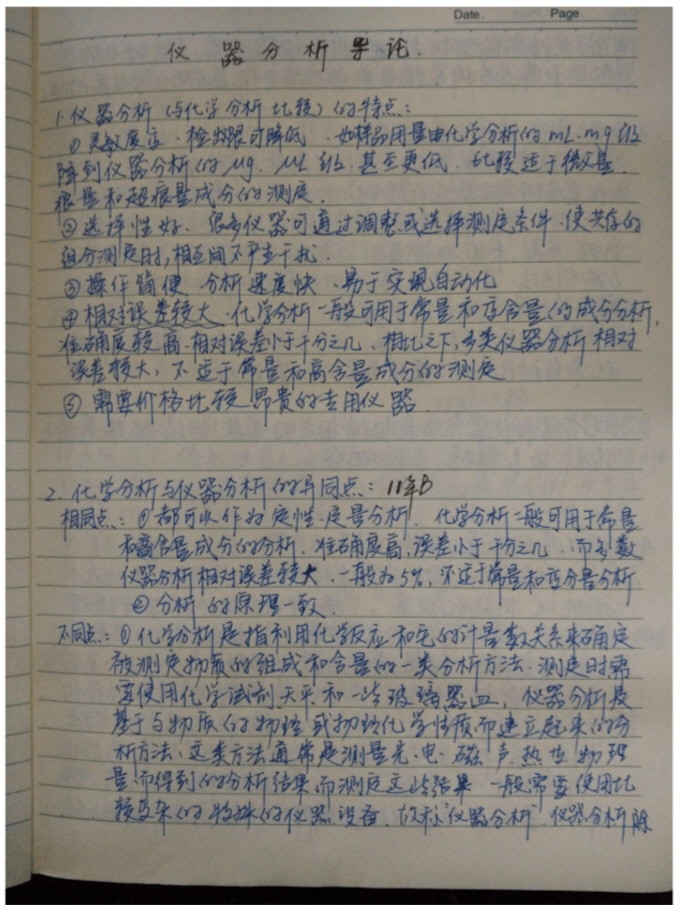 Date. Page.
仪器分析导论.
1. 仪器分析(与化学分析比较)的特点:
① 灵敏度高. 检出限可降低. 如样品用量由化学分析的mL. mg级
降到仪器分析的μg. μL级. 甚至更低. 比较适于微量.
痕量和超痕量成分的测定.
② 选择性好. 很多仪器可通过调整或选择测定条件. 使共存的
组分测定时, 相互间不产生干扰.
③ 操作简便. 分析速度快. 易于实现自动化
④ 相对误差较大. 化学分析一般可用于常量和高含量的成分分析,
准确度较高. 相对误差小于千分之几. 相比之下, 多类仪器分析相对
误差较大, 不适于常量和高含量成分的测定
⑤ 需要价格比较昂贵的专用仪器.
2. 化学分析与仪器分析的异同点: 11年B
相同点: ① 都可以作为定性.定量分析. 化学分析一般可用于常量
和高含量成分的分析. 准确度高, 误差小于千分之几. 而多数
仪器分析相对误差较大. 一般为5%, 不适于常量和高分量分析.
② 分析的原理一致.
不同点: ① 化学分析是指利用化学反应和它的计量数关系来确定
被测定物质的组成和含量的一类分析方法. 测定时需
要使用化学试剂.天平和一些玻璃器皿. 仪器分析是
基于与物质的物理或物理化学性质而建立起来的分
析方法, 这类方法通常是测量光.电.磁.声.热等物理
量而得到的分析结果, 而测定这些结果一般需要使用比
较复杂的特殊的仪器设备. 故称"仪器分析". 仪器分析除